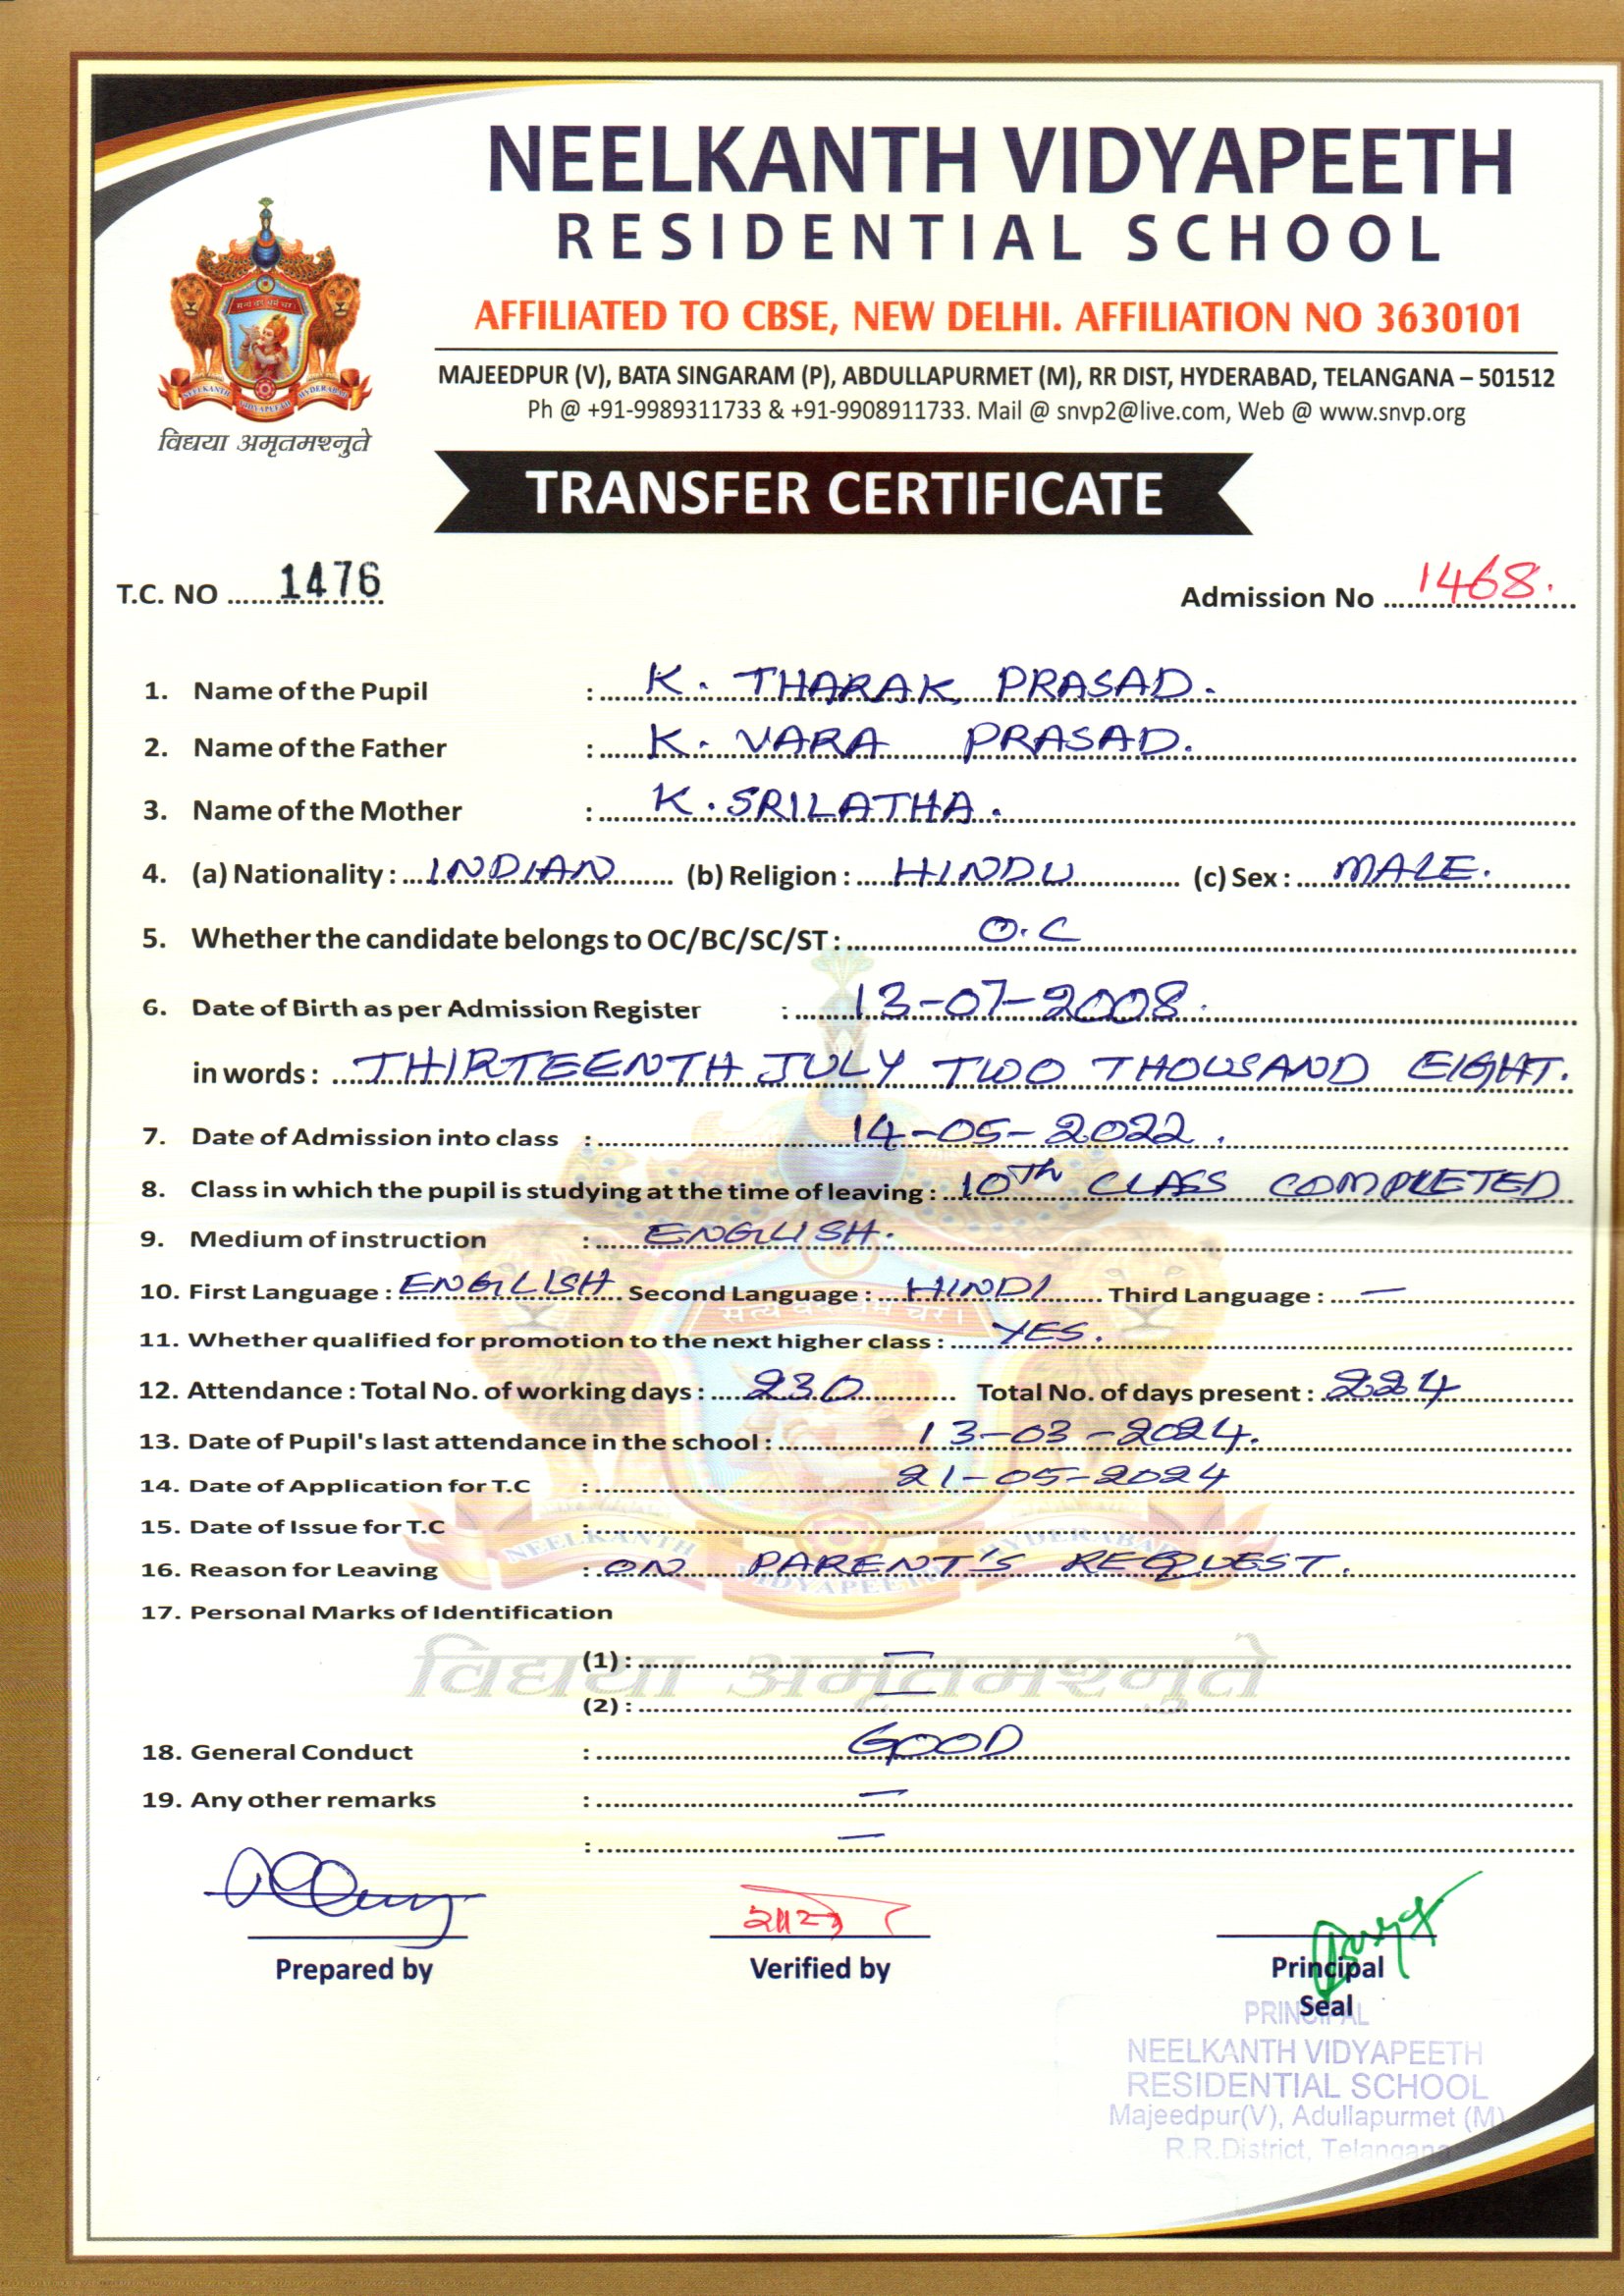 NEELKANTH VIDYAPEETH
RESIDENTIAL SCHOOL
AFFILIATED TO CBSE, NEW DELHI. AFFILIATION NO 3630101
MAJEEDPUR (V), BATA SINGARAM (P), ABDULLAPURMET (M), RR DIST, HYDERABAD, TELANGANA – 501512
Ph @ +91-9989311733 & +91-9908911733. Mail @ snvp2@live.com, Web @ www.snvp.org
NEELKANTH VIDYAPEETH HYDERABAD
विद्यया अमृतमश्नुते
TRANSFER CERTIFICATE
T.C. NO ....... 1476 Admission No ....... 1468.
1. Name of the Pupil : K. THARAK PRASAD.
2. Name of the Father : K. VARA PRASAD.
3. Name of the Mother : K. SRILATHA.
4. (a) Nationality : INDIAN (b) Religion : HINDU (c) Sex : MALE.
5. Whether the candidate belongs to OC/BC/SC/ST : O.C
6. Date of Birth as per Admission Register : 13-07-2008.
in words : THIRTEENTH JULY TWO THOUSAND EIGHT.
7. Date of Admission into class : 14-05-2022.
8. Class in which the pupil is studying at the time of leaving : 10Th CLASS COMPLETED
9. Medium of instruction : ENGLISH.
10. First Language : ENGLISH Second Language : HINDI Third Language : —
सत्य वद धर्म चर।
11. Whether qualified for promotion to the next higher class : YES.
12. Attendance : Total No. of working days : 230 Total No. of days present : 224
13. Date of Pupil's last attendance in the school : 13-03-2024.
14. Date of Application for T.C : 21-05-2024
15. Date of Issue for T.C :
NEELKANTH VIDYAPEETH HYDERABAD
16. Reason for Leaving : ON PARENT'S REQUEST.
17. Personal Marks of Identification
(1) : —
विद्यया अमृतमश्नुते
(2) : —
18. General Conduct : GOOD
19. Any other remarks : —
: —
Prepared by Verified by Principal
Seal
PRINCIPAL
NEELKANTH VIDYAPEETH
RESIDENTIAL SCHOOL
Majeedpur(V), Adullapurmet (M)
R.R.District, Telangana